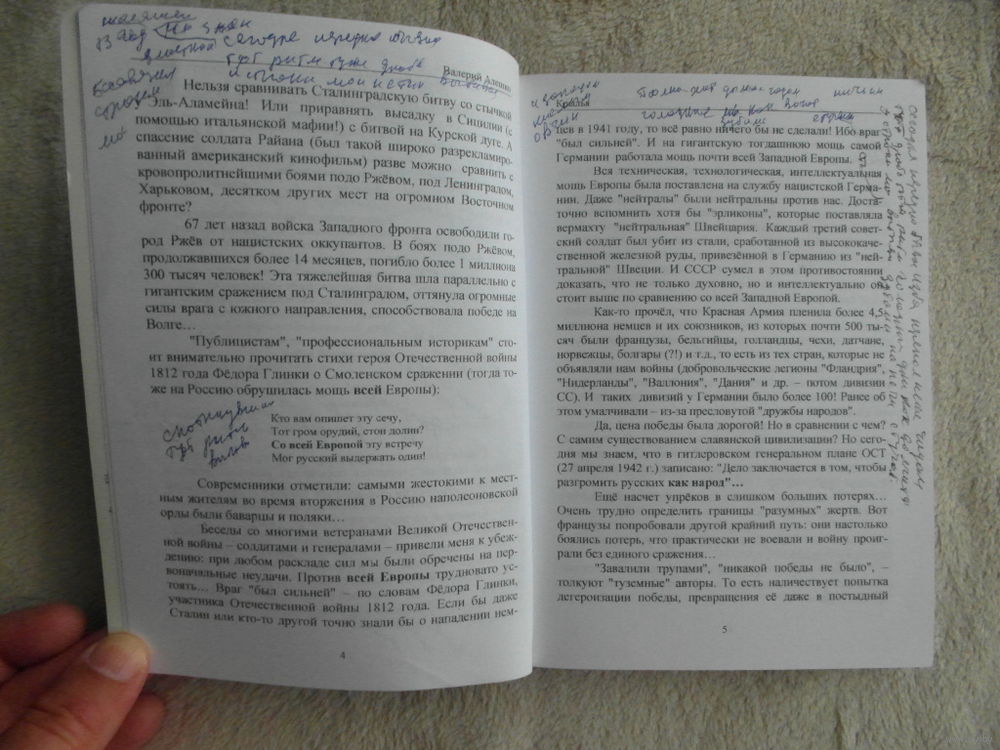 Валерий
Нельзя сравнивать Сталинградскую битву со стычкой
Эль-Аламейна! Или приравнять высадку в Сицилии (с
помощью итальянской мафии!) с битвой на Курской дуге. А
спасение солдата Райана (был такой широко разрекламиро-
ванный американский кинофильм) разве можно сравнить с
кровопролитнейшими боями подо Ржёвом, под Ленинградом,
Харьковом, десятком других мест на огромном Восточном
фронте?
67 лет назад войска Западного фронта освободили го-
род Ржёв от нацистских оккупантов. В боях подо Ржёвом,
продолжавшихся более 14 месяцев, погибло более 1 миллиона
300 тысяч человек! Эта тяжелейшая битва шла параллельно с
гигантским сражением под Сталинградом, оттянула огромные
силы врага с южного направления, способствовала победе на
Волге…
"Публицистам", "профессиональным историкам" сто-
ит внимательно прочитать стихи героя Отечественной войны
1812 года Фёдора Глинки о Смоленском сражении (тогда то-
же на Россию обрушилась мощь всей Европы):
Кто вам опишет эту сечу,
Тот гром орудий, стон долин?
Со всей Европой эту встречу
Мог русский выдержать один!
Современники отметили: самыми жестокими к мест-
ным жителям во время вторжения в Россию наполеоновской
орды были баварцы и поляки…
Беседы со многими ветеранами Великой Отечествен-
ной войны – солдатами и генералами – привели меня к убеж-
дению: при любом раскладе сил мы были обречены на пер-
воначальные неудачи. Против всей Европы трудновато ус-
тоять… Враг "был сильней" – по словам Фёдора Глинки,
участника Отечественной войны 1812 года. Если бы даже
Сталин или кто-то другой точно знали бы о нападении нем-
4
цев в 1941 году, то всё равно ничего бы не сделали! Ибо враг
"был сильней". И на гигантскую тогдашнюю мощь самой
Германии работала мощь почти всей Западной Европы.
Вся техническая, технологическая, интеллектуальная
мощь Европы была поставлена на службу нацистской Герма-
нии. Даже "нейтралы" были нейтральны против нас. Доста-
точно вспомнить хотя бы "эрликоны", которые поставляла
вермахту "нейтральная" Швейцария. Каждый третий совет-
ский солдат был убит из стали, сработанной из высококаче-
ственной железной руды, привезённой в Германию из "ней-
тральной" Швеции. И СССР сумел в этом противостоянии
доказать, что не только духовно, но и интеллектуально он
стоит выше по сравнению со всей Западной Европой.
Как-то прочёл, что Красная Армия пленила более 4,5
миллиона немцев и их союзников, из которых почти 500 ты-
сяч были французы, бельгийцы, голландцы, чехи, датчане,
норвежцы, болгары (?!) и т.д., то есть из тех стран, которые не
объявляли нам войны (добровольческие легионы "Фландрия",
"Нидерланды", "Валлония", "Дания" и др. – потом дивизии
СС). И таких дивизий у Германии было более 100! Ранее об
этом умалчивали – из-за пресловутой "дружбы народов".
Да, цена победы была дорогой! Но в сравнении с чем?
С самим существованием славянской цивилизации? Но сего-
дня мы знаем, что в гитлеровском генеральном плане ОСТ
(27 апреля 1942 г.) записано: "Дело заключается в том, чтобы
разгромить русских как народ"…
Ещё насчет упрёков в слишком больших потерях…
Очень трудно определить границы "разумных" жертв. Вот
французы попробовали другой крайний путь: они настолько
боялись потерь, что практически не воевали и войну проиг-
рали без единого сражения…
"Завалили трупами", "никакой победы не было", –
толкуют "туземные" авторы. То есть наличествует попытка
дегероизации победы, превращения её даже в постыдный
5